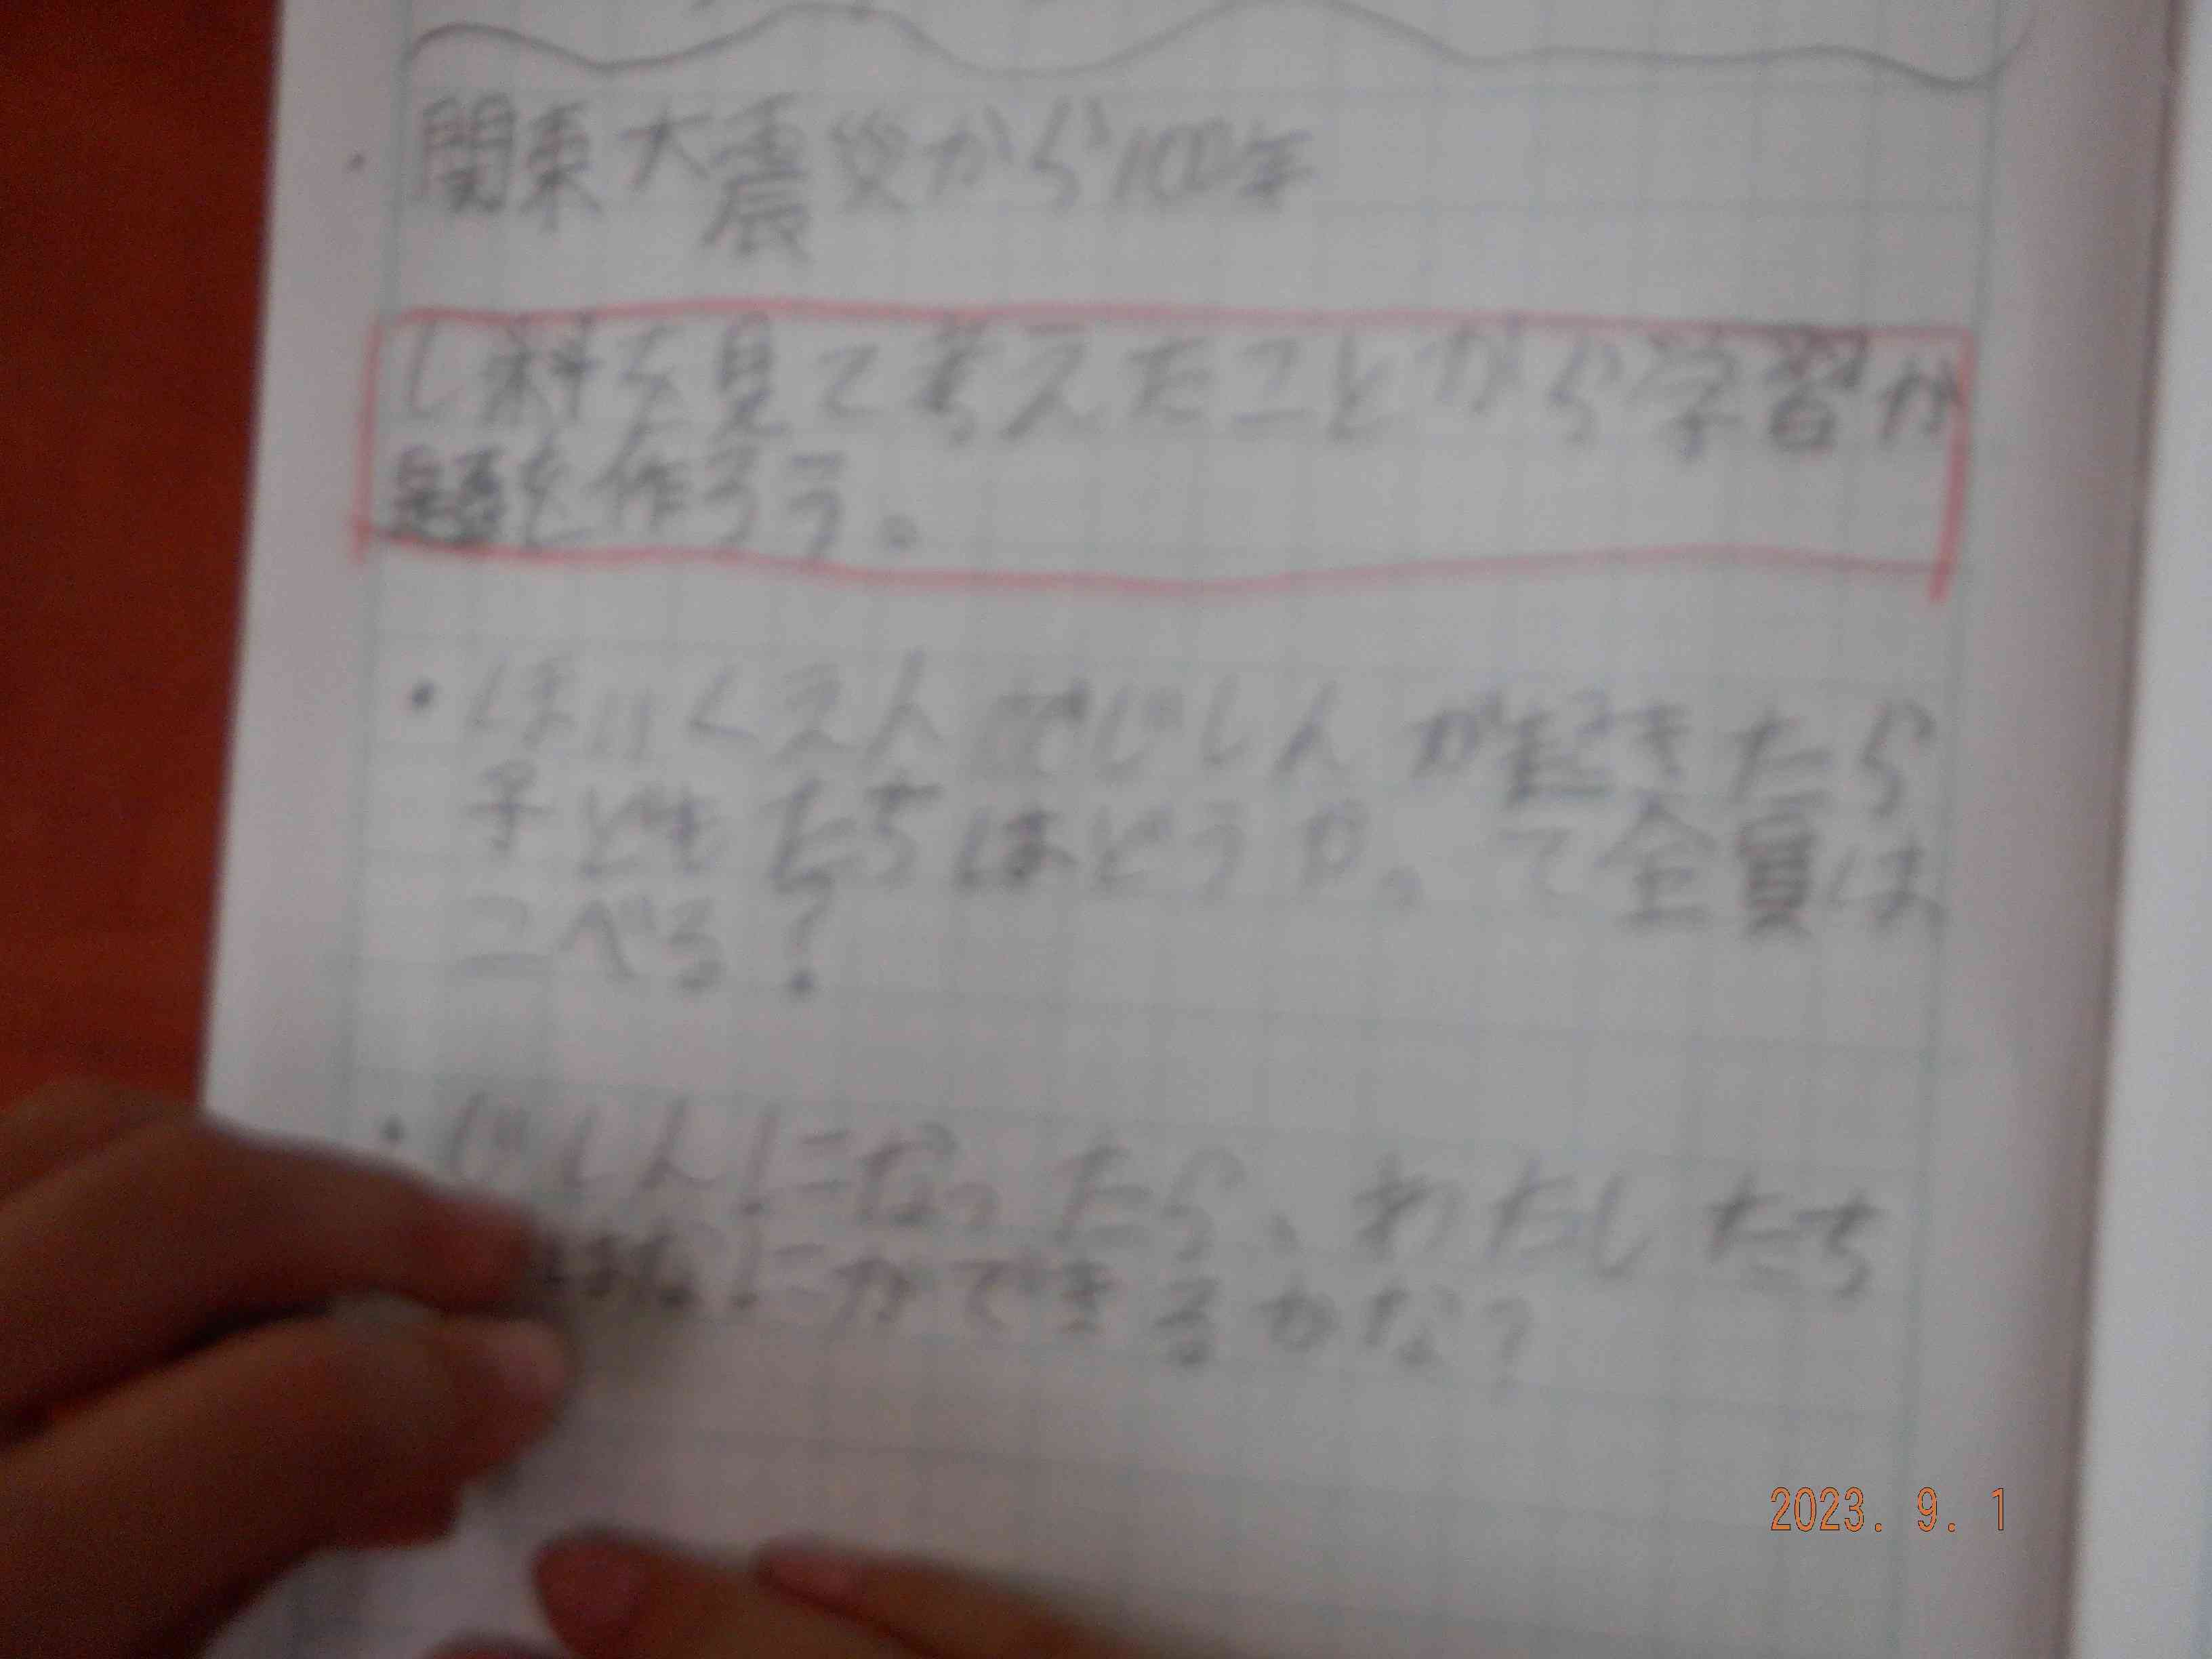 関東大震災から100年
し料を見て考えたことから学習か
題を作ろう。
・ほいくえんでじしんが起きたら
子どもたちはどうか。て全員は
こべる?
・じしんになったら、わたしたち
なにができるかな?
2023. 9. 1